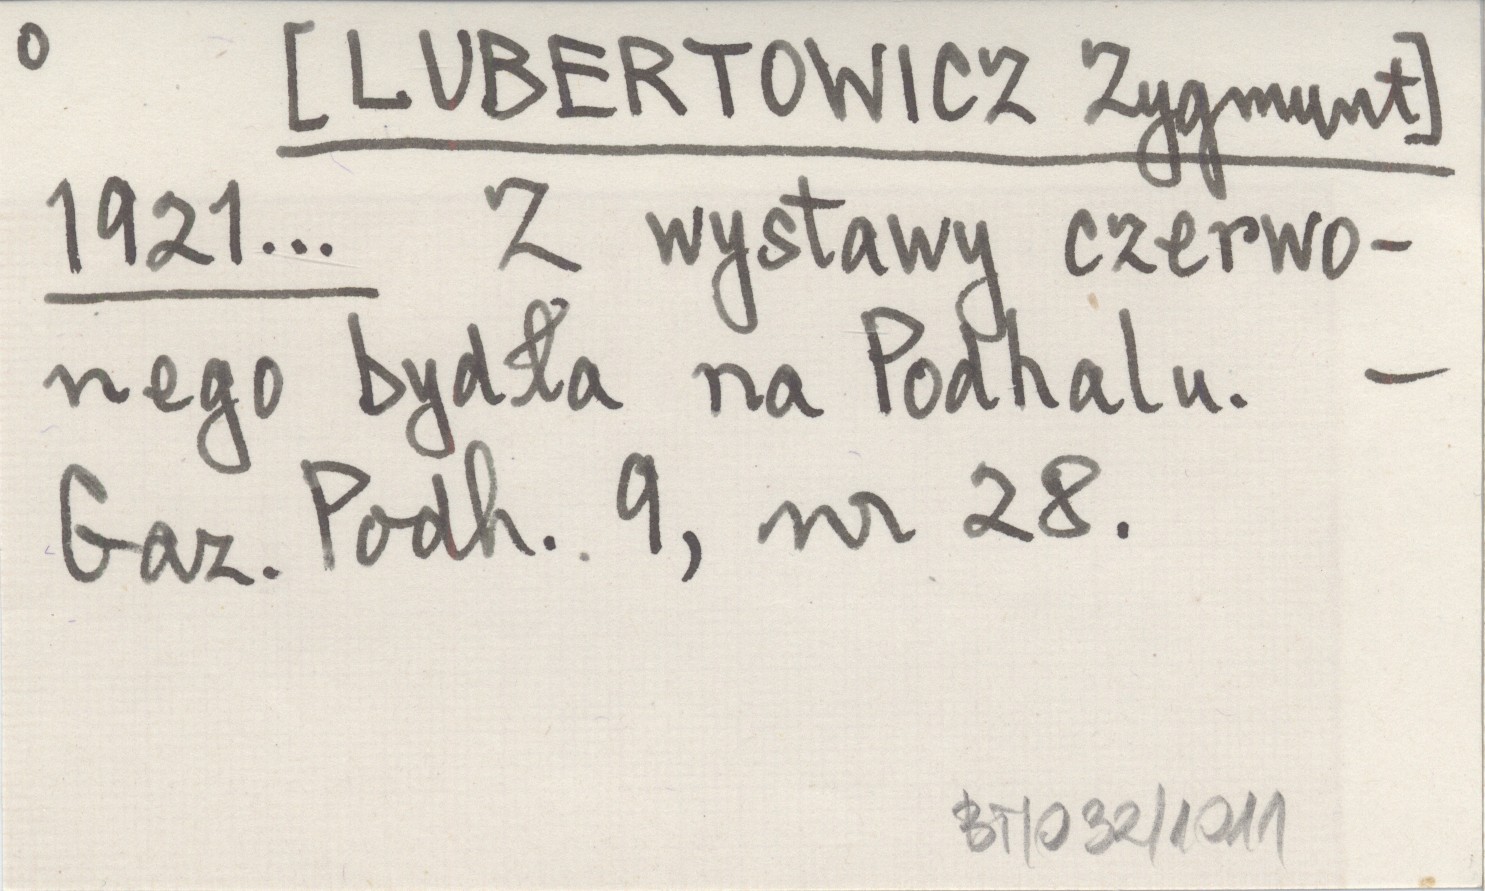 o [LUBERTOWICZ Zygmunt]
1921... Z wystawy czerwo-
nego bydła na Podhalu. –
Gaz. Podh. 9, nr 28.
BT/032/1011